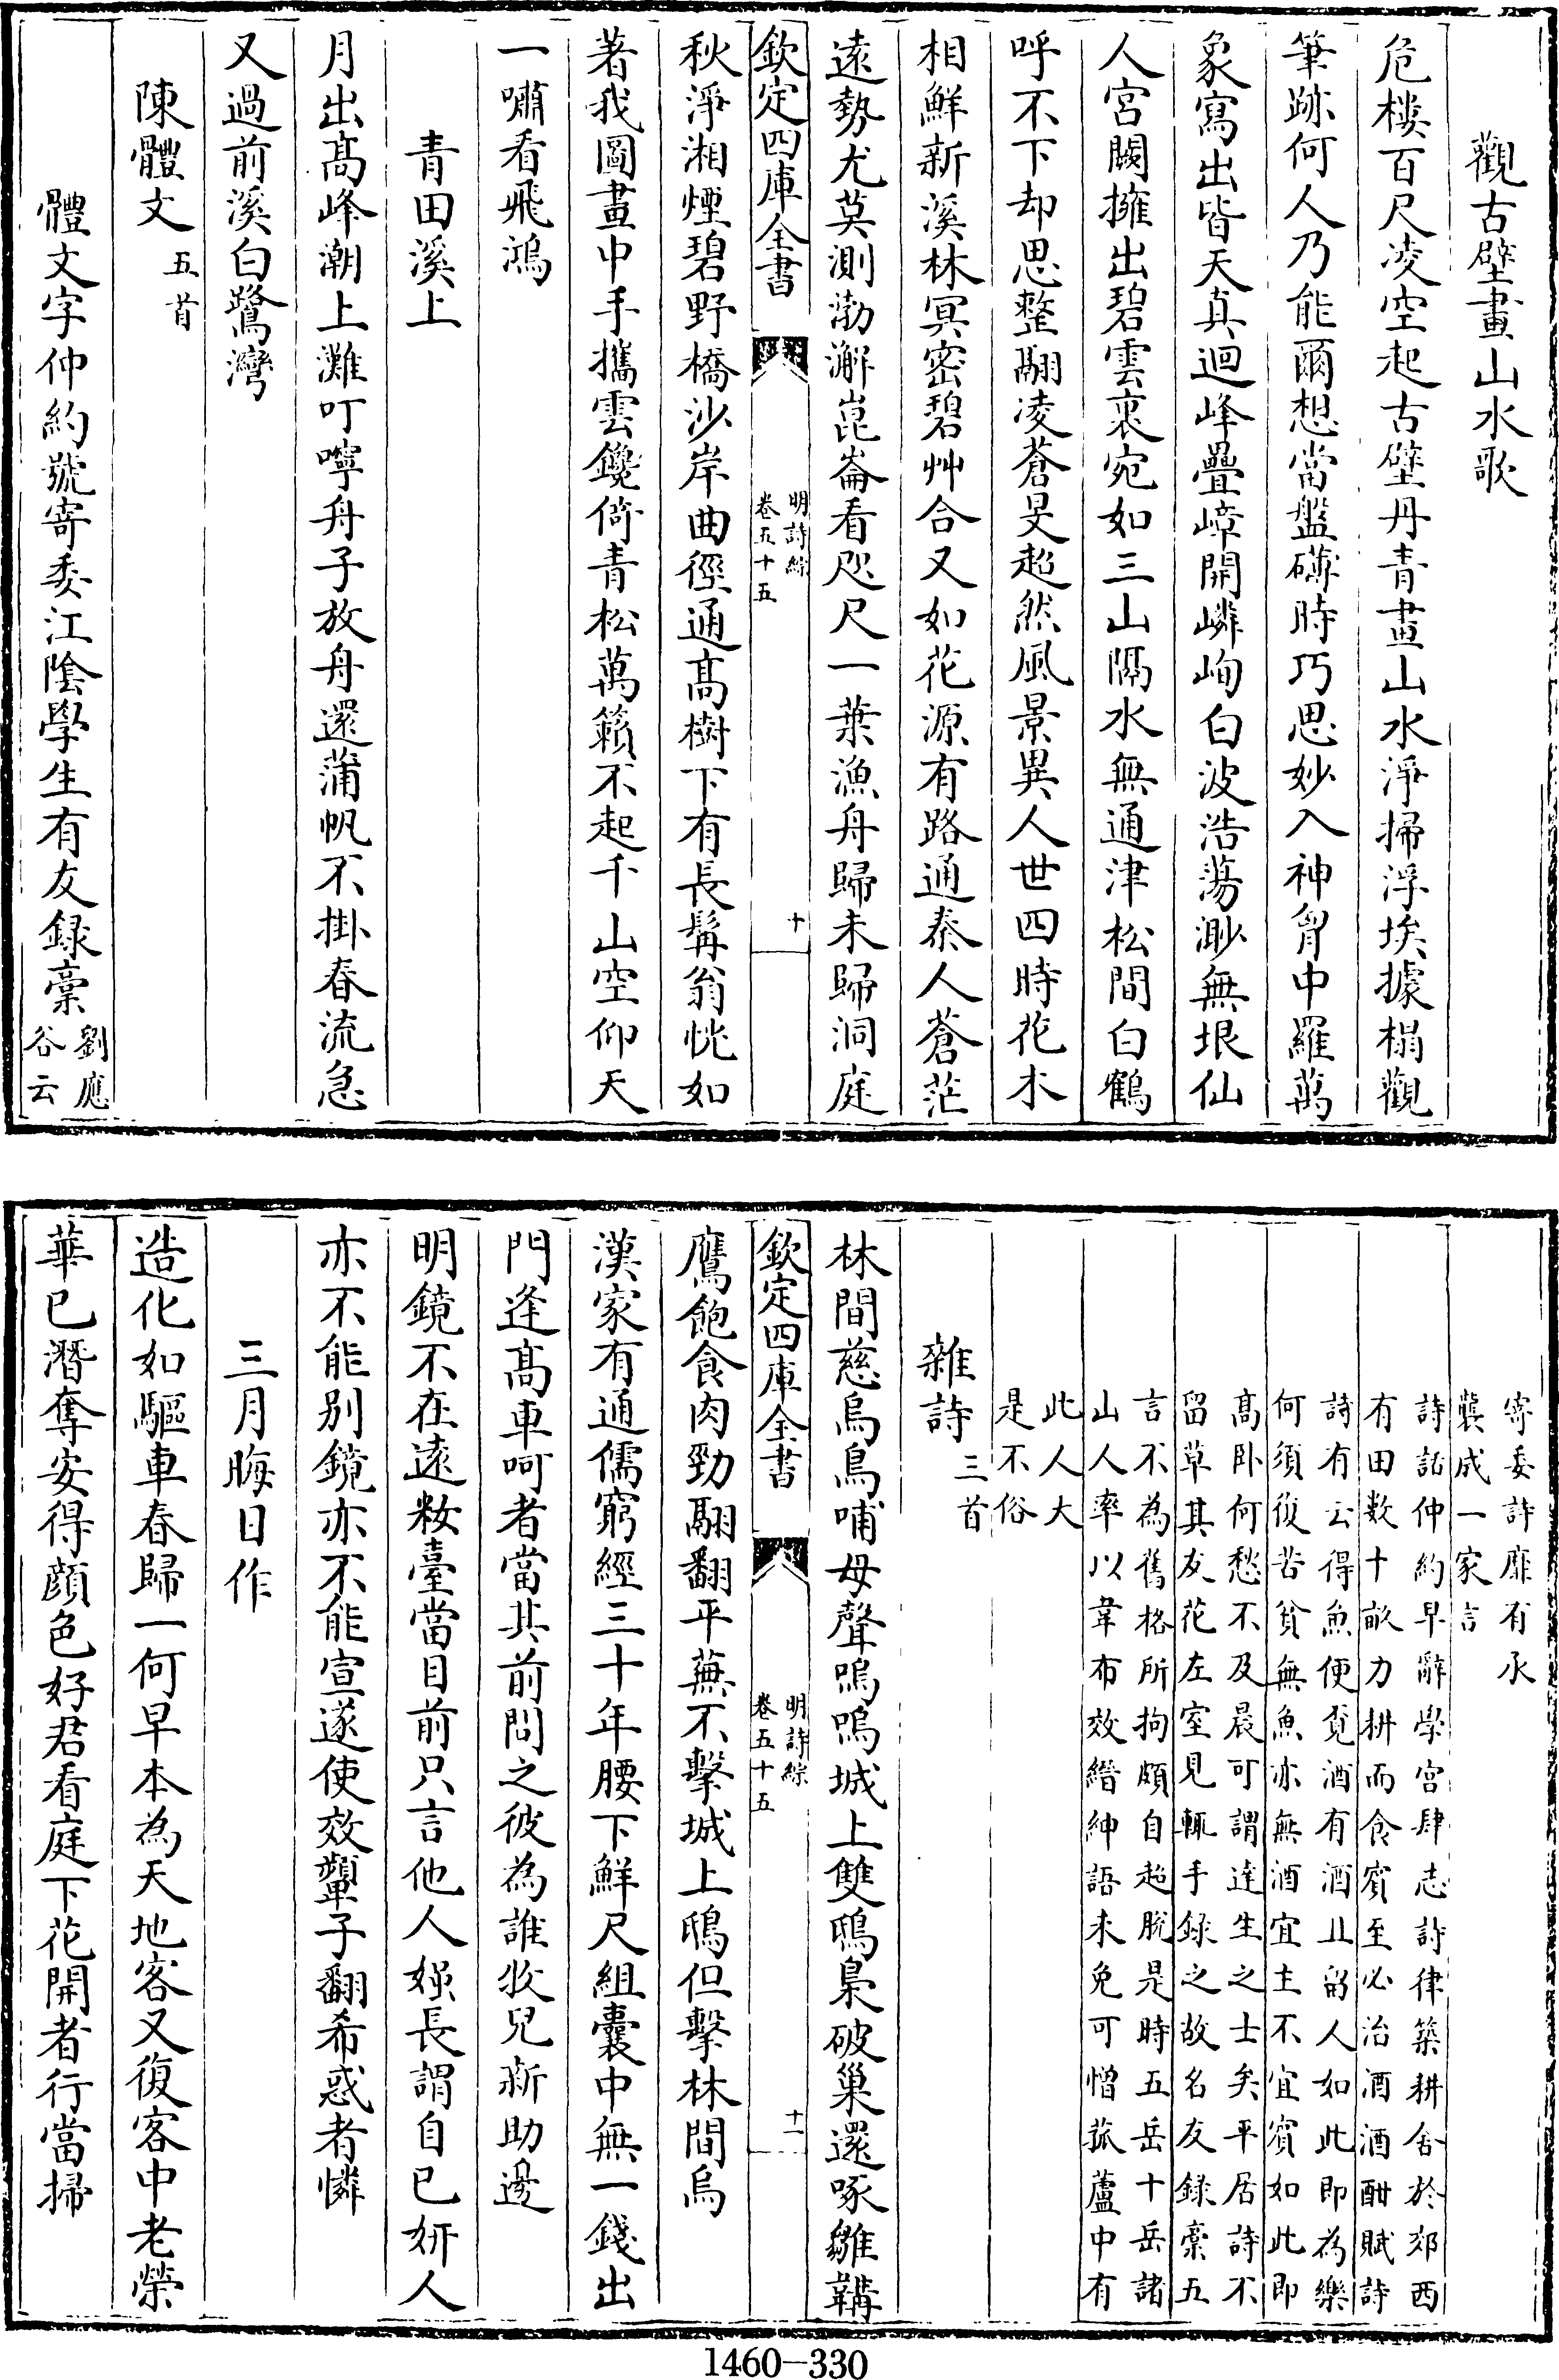 觀古壁畫山水歌
危樓百尺凌空起古壁丹青畫山水淨掃浮埃據榻觀
筆跡何人乃能爾想當盤礴時巧思妙入神胷中羅萬
象寫出皆天真迴峰疊嶂開嶙峋白波浩蕩渺無垠仙
人宮闕擁出碧雲裏宛如三山隔水無通津松間白鶴
呼不下却思整翮凌蒼旻超然風景異人世四時花木
相鮮新溪林冥密碧艸合又如花源有路通秦人蒼茫
遠勢尤莫測渤澥崑崙看咫尺一葉漁舟歸未歸洞庭
欽定四庫全書
明詩綜
卷五十五
十
秋淨湘煙碧野橋沙岸曲徑通髙樹下有長髯翁恍如
著我圖畫中手攜雲鑱倚青松萬籟不起千山空仰天
一嘯看飛鴻
青田溪上
月出髙峰潮上灘叮嚀舟子放舟還蒲帆不掛春流急
又過前溪白鷺灣
陳體文五首
體文字仲約號寄委江陰學生有友録稾劉應
谷云
寄委詩靡有承
襲成一家言
詩話仲約早辭學宫肆志詩律築耕舍於郊西
有田数十畝力耕而食賓至必治酒酒酣賦詩
詩有云得魚便覔酒有酒且留人如此即為樂
何須復苦貧無魚亦無酒宜主不宜賓如此即
髙卧何愁不及晨可謂達生之士矣平居詩不
留草其友花左室見輒手録之故名友録稾五
言不為舊格所拘頗自超脫是時五岳十岳諸
山人率以韋布效縉紳語未免可憎菰蘆中有
此人大
是不俗
雜詩三首
林間慈烏鳥哺母聲嗚嗚城上雙鴟梟破巢還啄雛鞲
欽定四庫全書
明詩綜
卷五十五
十一
鷹飽食肉勁翮翻平蕪不擊城上鴟但擊林間烏
漢家有通儒窮經三十年腰下鮮尺組囊中無一錢出
門逢髙車呵者當其前問之彼為誰牧兒新助邊
明鏡不在遠粧臺當目前只言他人媸長謂自已妍人
亦不能别鏡亦不能宣遂使效顰子翻希惑者憐
三月晦日作
造化如驅車春歸一何早本為天地客又復客中老榮
華已潛奪安得顔色好君看庭下花開者行當掃
1460-330